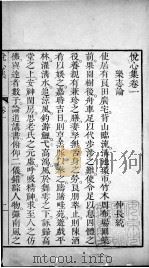 悅心集卷一
樂志論
仲長統
使居有良田廣宅背山臨流溝池環匝竹木周布場圃築
前果園樹後舟車足以代步涉之難使令足以息四體之
役養親有兼珍之膳妻孥無苦身之勞良朋萃止則陳酒
肴以娛之嘉時吉日則烹羔豚以奉之躊躇畦苑遊戲平
林濯清水追涼風釣游鯉弋高鴻風於舞雩之下詠歸高
堂之上安神閨房思老氏之虛呼吸精和求至人之彷
彿與達者數子論道講書俯仰二儀錯綜人物彈南風之